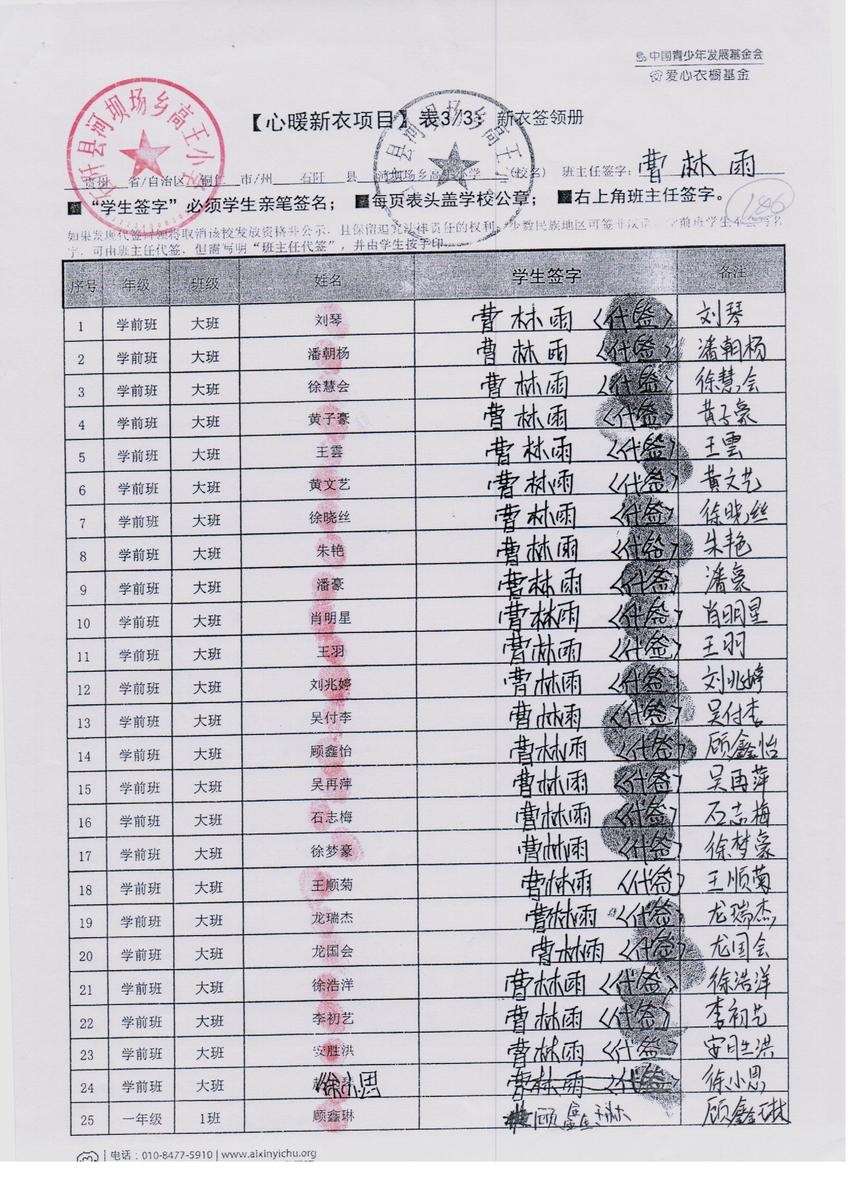 中国青少年发展基金会
爱心衣橱基金
【心暖新衣项目】表3/3：新衣签领册
石阡县河坝场乡高王小学
贵州 省/自治区 铜仁 市/州 石阡 县 河坝场乡高王小学 (校名) 班主任签字：曹林雨
■“学生签字”必须学生亲笔签名；■每页表头盖学校公章；■右上角班主任签字。
146
如果发现代签冒领将取消该校发放资格并公示，且保留追究法律责任的权利。少数民族地区可签非汉语
字，可由班主任代签，但需写明“班主任代签”，并由学生按手印。
序号 年级 班级 姓名 学生签字 备注
1 学前班 大班 刘琴 曹林雨〈代签〉 刘琴
2 学前班 大班 潘朝杨 曹林雨〈代签〉 潘朝杨
3 学前班 大班 徐慧会 曹林雨〈代签〉 徐慧会
4 学前班 大班 黄子豪 曹林雨〈代签〉 黄子豪
5 学前班 大班 王雲 曹林雨〈代签〉 王雲
6 学前班 大班 黄文艺 曹林雨〈代签〉 黄文艺
7 学前班 大班 徐晓丝 曹林雨〈代签〉 徐晓丝
8 学前班 大班 朱艳 曹林雨〈代签〉 朱艳
9 学前班 大班 潘豪 曹林雨〈代签〉 潘豪
10 学前班 大班 肖明星 曹林雨〈代签〉 肖明星
11 学前班 大班 王羽 曹林雨〈代签〉 王羽
12 学前班 大班 刘兆婷 曹林雨〈代签〉 刘兆婷
13 学前班 大班 吴付李 曹林雨〈代签〉 吴付李
14 学前班 大班 顾鑫怡 曹林雨〈代签〉 顾鑫怡
15 学前班 大班 吴再萍 曹林雨〈代签〉 吴再萍
16 学前班 大班 石志梅 曹林雨〈代签〉 石志梅
17 学前班 大班 徐梦豪 曹林雨〈代签〉 徐梦豪
18 学前班 大班 王顺菊 曹林雨〈代签〉 王顺菊
19 学前班 大班 龙瑞杰 曹林雨〈代签〉 龙瑞杰
20 学前班 大班 龙国会 曹林雨〈代签〉 龙国会
21 学前班 大班 徐浩洋 曹林雨〈代签〉 徐浩洋
22 学前班 大班 李初艺 曹林雨〈代签〉 李初艺
23 学前班 大班 安胜洪 曹林雨〈代签〉 安胜洪
24 学前班 大班 徐小思 曹林雨〈代签〉 徐小思
25 一年级 1班 顾鑫琳 顾鑫琳 顾鑫琳
电话：010-8477-5910 | www.aixinyichu.org